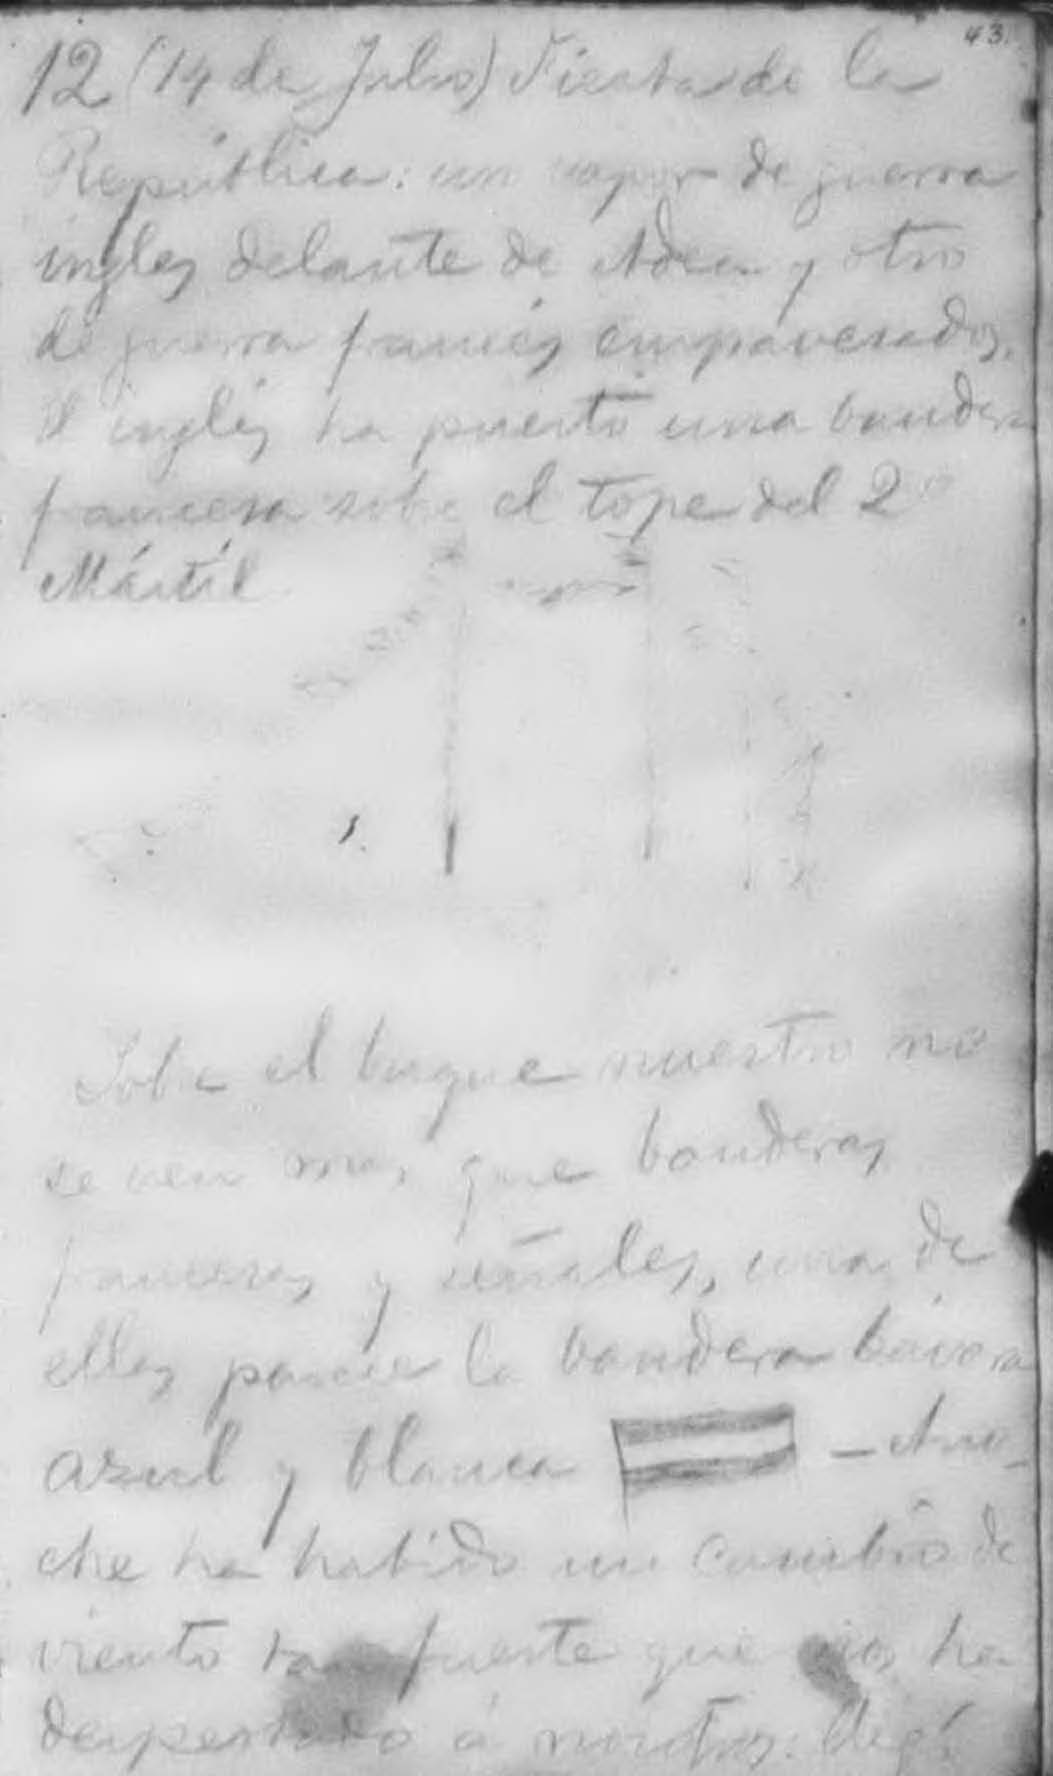 43.
12 (14 de Julio) Fiesta de la
República: un vapor de guerra
inglés delante de Aden y otro
de guerra francés empavesados.
El inglés ha puesto una bandera
francesa sobre el tope del 2º
Mástil
Sobre el buque nuestro no
se ven mas que banderas
francesas y señales, una de
ellas parece la bandera bávara
azul y blanca — Ano-
che ha habido un cambio de
viento tan fuerte que nos ha
despertado á nosotros.